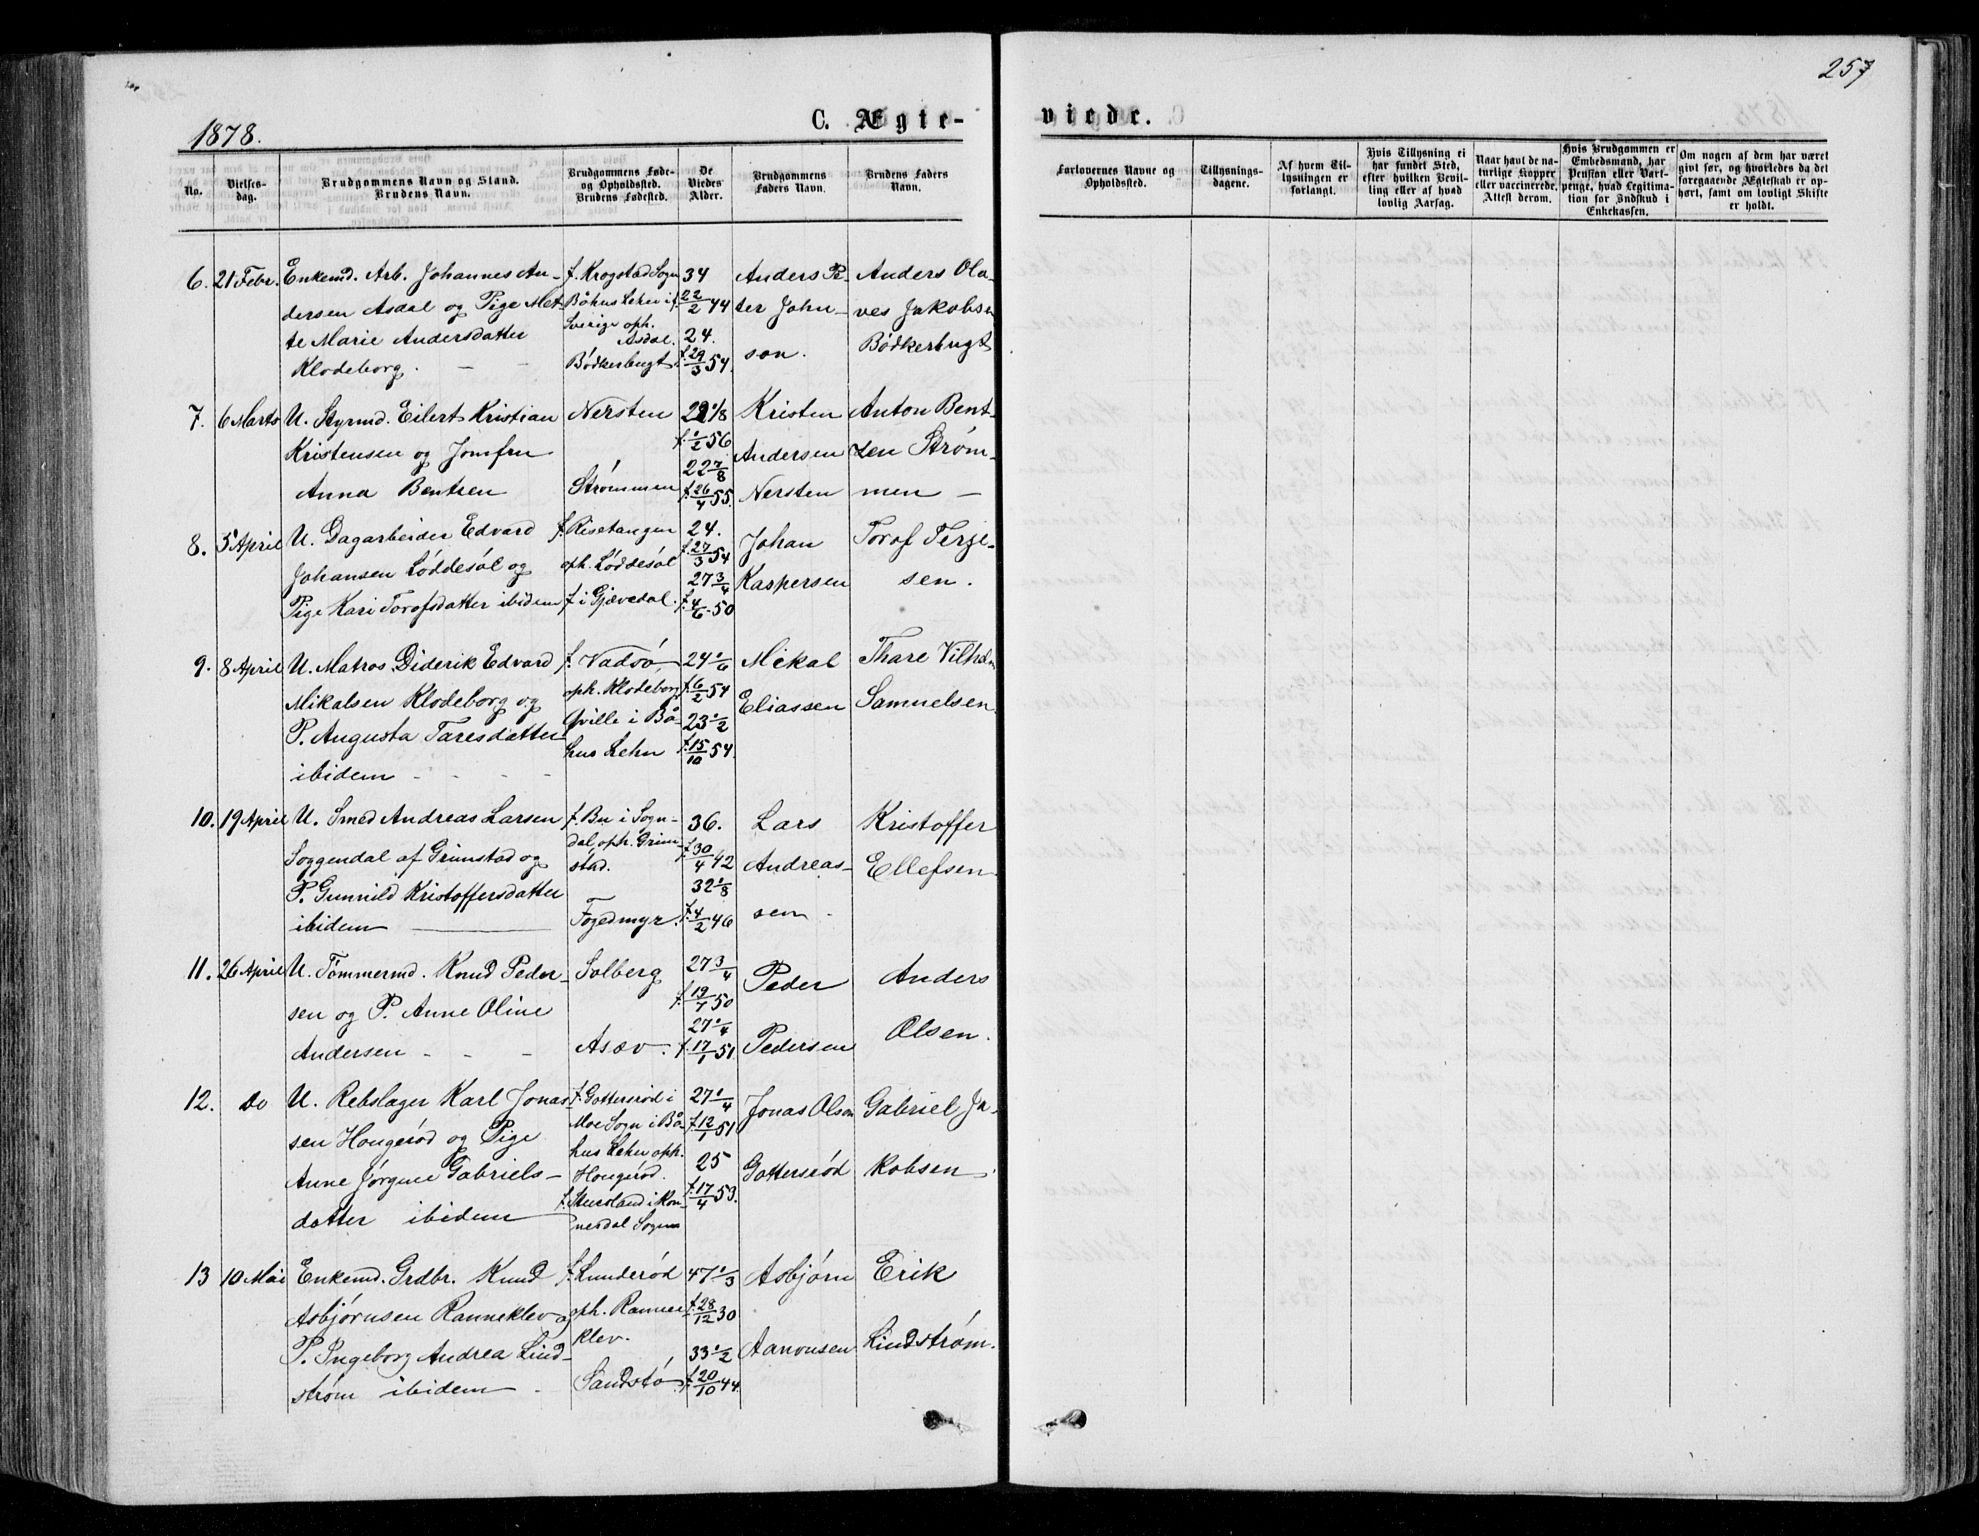 257
1878.
C. Ægte-
viede.
No.
Vielses-
dag.
Brudgommens Navn og Stand.
Brudens Navn.
Brudgommens Føde-
og Opholdssted.
Brudens Fødested.
De
Viedes
Alder.
Brudgommens
Faders Navn.
Brudens Faders
Navn.
Forlovernes Navne og
Opholdssted.
Tillysnings-
dagene.
Af hvem Til-
lysningen er
forlangt.
Hvis Tillysning ei
har fundet Sted,
efter hvilken Bevil-
ling eller af hvad
lovlig Aarsag.
Naar havt de na-
turlige Kopper
eller vaccinerede.
Attest derom.
Hvis Brudgommen er
Embedsmand, har
Pension eller Vart-
penge, hvad Legitima-
tion for Indskud i
Enkekassen.
Om nogen af dem har været
givt før, og hvorledes da det
foregaaende Ægteskab er op-
hørt, samt om lovligt Skifte
er holdt.
6. 21 Febr. Enkemd. Arb. Johannes An-
dersen Asdal og Pige Met-
te Marie Andersdatter
Klodeborg.
f. Krogstad Sogn
Båhus Lehn i
Sverige oph.
Asdal.
Bødkerbugt.
34
f. 22/2 44
24.
f. 29/3 54.
Anders Pe-
ter John-
son.
Anders Ola-
ves Jakobsen
Bødkerbugt
7. 6 Marts U. Styrmd. Eilert Kristian
Kristensen og Jomfru
Anna Bentsen
Nersten
Strømmen
22 1/8
f. 1/2 56
22 7/8
f. 26/4 55.
Kristen
Andersen
Nersten
Anton Bent-
zen Strøm-
men
8. 5 April U. Dagarbeider Edvard
Johansen Løddesøl og
Pige Kari Torofsdatter ibidem
f. Risetangen
oph. Løddesøl
f. i Gjævedal.
24.
f. 27/3 54
27 3/4
f. 4/6 50
Johan
Kaspersen
Torof Terje-
sen.
9. 8 April U. Matros Diderik Edvard
Mikalsen Klodeborg og
P. Augusta Taresdatter
ibidem
f. Vadsø,
oph. Klodeborg
Qville i Bå-
hus Lehn
24 1/6
f. 6/2 54
23 1/2
f. 15/10 54.
Mikal
Eliassen
Thare Vilhelm
Samuelsen
10. 19 April U. Smed Andreas Larsen
Soggendal af Grimstad og
P. Gunnild Kristoffersdatter
ibidem
f. Bu i Sogn-
dal, oph. Grim-
stad.
Fogedmyr.
36.
f. 30/4 42
32 1/8
f. 4/2 46
Lars
Andreas-
sen.
Kristoffer
Ellefsen
11. 26 April U. Tømmermd. Knud Peder-
sen og P. Anne Oline
Andersen
Solberg
Asæv.
27 3/4
f. 19/7 50
27 1/4
f. 17/1 51.
Peder
Pedersen
Anders
Olsen.
12. do U. Rebslager Karl Jonas-
sen Hougerød og Pige
Anne Jørgine Gabriels-
datter ibidem
f. Gottersrød i
Moe Sogn i Bå-
hus Lehn oph.
Hougerød.
27 1/4
f. 12/1 51
25
f. 17/4 53.
Jonas Olsen
Gottersrød
Gabriel Ja-
kobsen
13 10 Mai Enkemd. Grdbr. Knud
Asbjørnsen Ranneklev og
P. Ingeborg Andrea Lind-
strøm ibidem
f. Lunderød
oph. Ranne-
klev.
Sandstø.
47 1/3
f. 28/12 30
33 1/2
f. 20/10 44.
Asbjørn
Aanonsen
Erik
Lindstrøm.